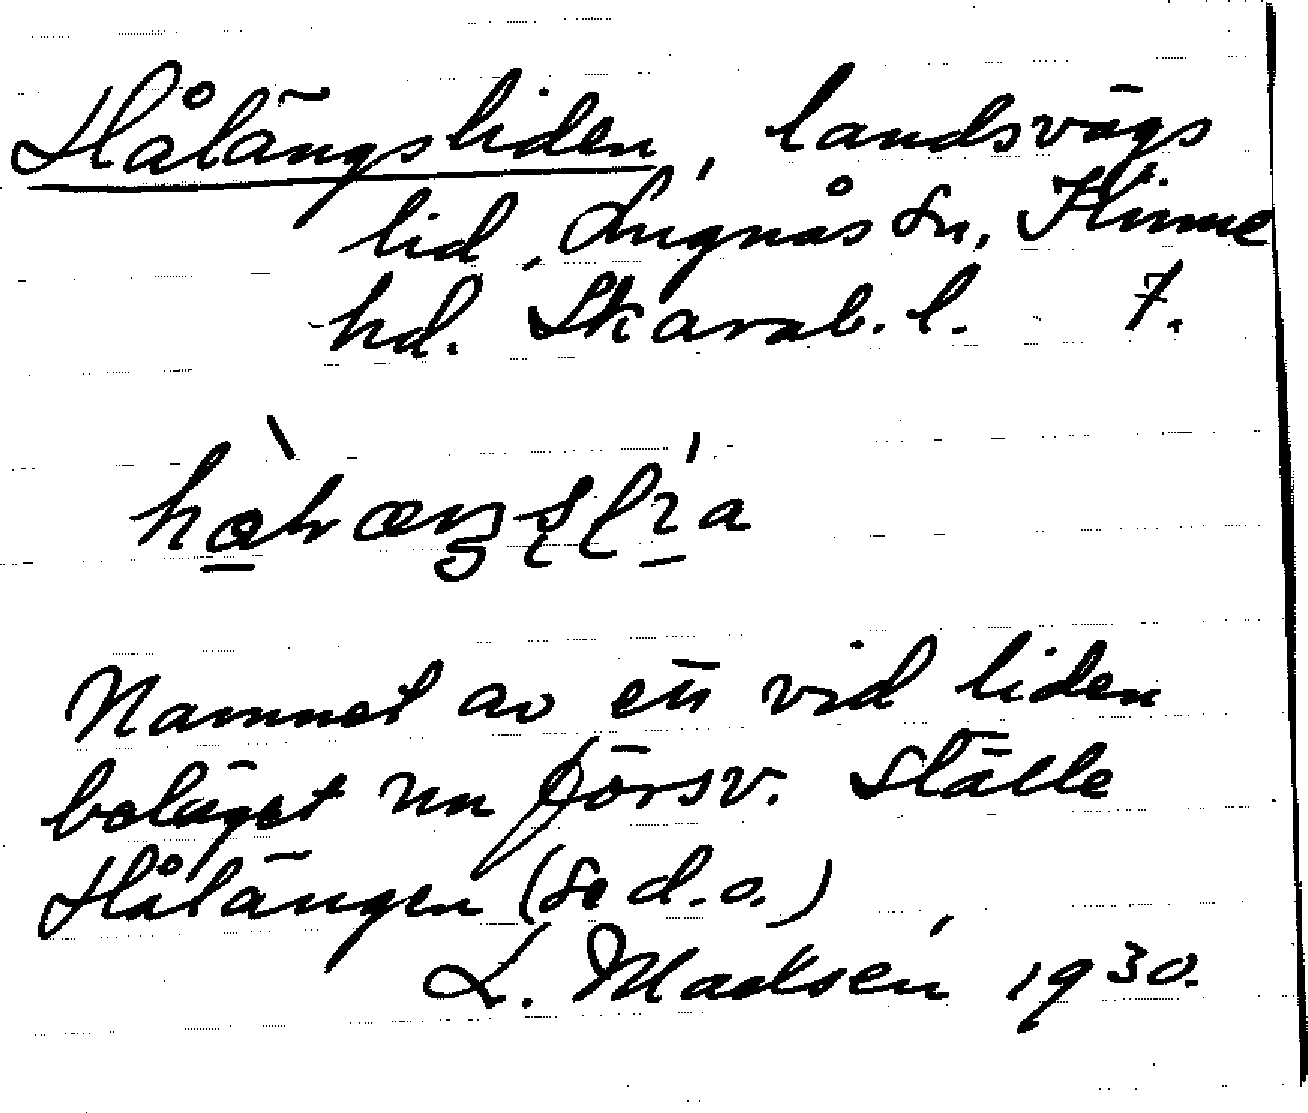 Hålängsliden, landsvägs
lid, Lugnås sn, Kinne
hd. Skarab. l. 7.
Namnet av ett vid liden
beläget nu försv. ställe
Hålängen (se d.o.)
L. Madsén 1930.